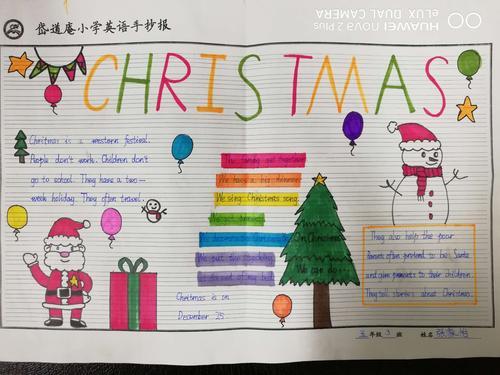 岱道庵小学英语手抄报
HUAWEI nova 2 Plus
eLUX DUAL CAMERA
CHRISTMAS
Christmas is a western festival.
People don't work. Children don't
go to school. They have a two-
week holiday. They often travel.
The family get together
We have a big dinner
We sing Christmas song.
On Christmas
We can do
Christmas is on
December 25.
They also help the poor
often pretend to be Santa
and give presents to their children.
They tell stories about Christmas.
五年级3班 姓名